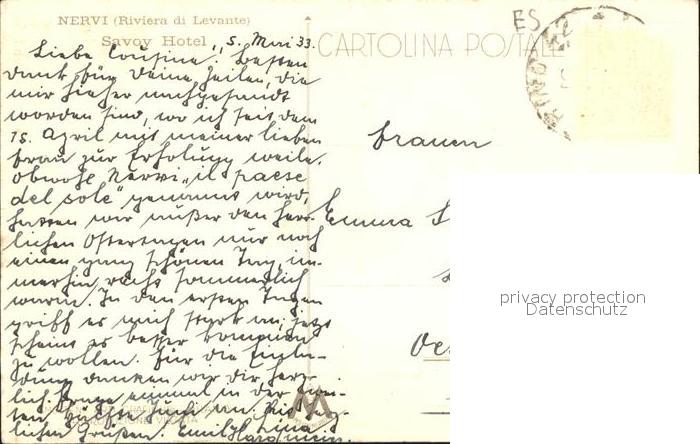 NERVI (Riviera di Levante)
Savoy Hotel
5. Mai 33.
CARTOLINA POSTALE
ES
Liebe Cousine! Besten
Dank für Deine Zeilen, die
mir hieher nachgesandt
worden sind, wo ich seit dem
15. April mit meiner lieben
Frau zur Erholung weile.
Obwohl Nervi „il paese
del sole" genannt wird,
hatten wir außer den herr-
lichen Ostertagen nur noch
einen ganz schönen Tag, im-
merhin recht sommerlich
warm. In den ersten Tagen
griff es mich stark an, jetzt
scheint es besser kommen
zu wollen. Für die Einla-
dung danken wir Dir herz-
lich.
einmal in der
ten Hälfte Juni an. Mit herz-
lichen Grüßen. Emil
Frauen
Emma S
Oe
privacy protection
Datenschutz